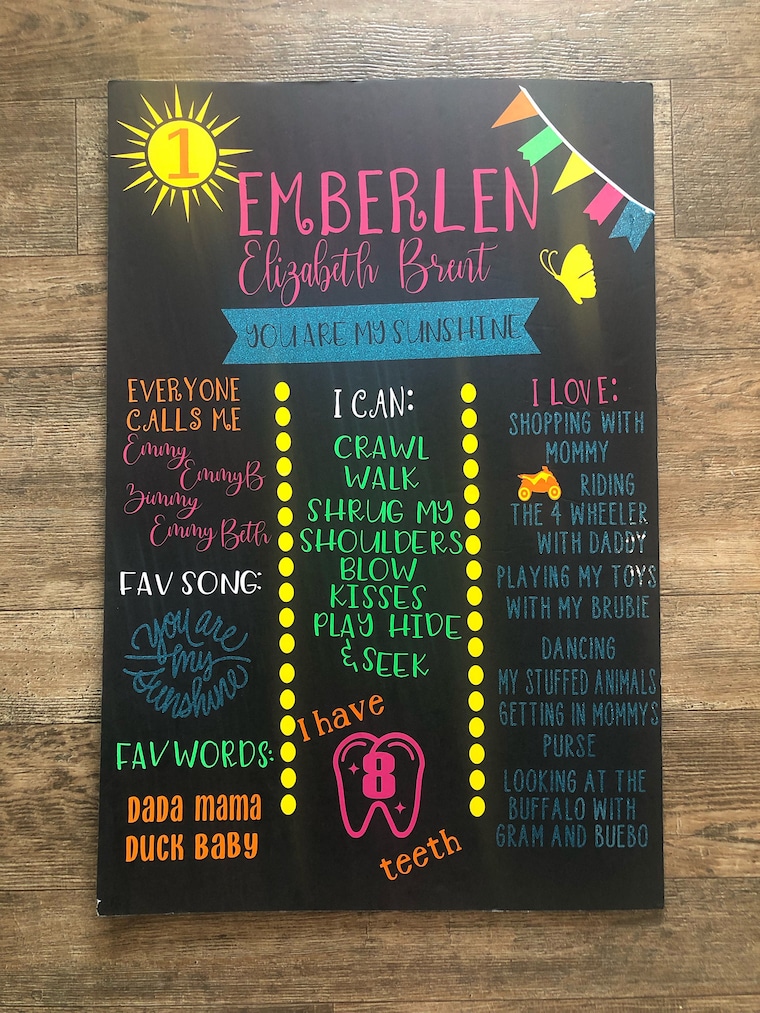 1
EMBERLEN
Elizabeth Brent
YOU ARE MY SUNSHINE
EVERYONE
CALLS ME
Emmy
EmmyB
Zimmy
Emmy Beth
FAV SONG:
you are
my
sunshine
FAV WORDS:
DADA MAMA
DUCK BABY
I CAN:
CRAWL
WALK
SHRUG MY
SHOULDERS
BLOW
KISSES
PLAY HIDE
& SEEK
I have
8
teeth
I LOVE:
SHOPPING WITH
MOMMY
RIDING
THE 4 WHEELER
WITH DADDY
PLAYING MY TOYS
WITH MY BRUBIE
DANCING
MY STUFFED ANIMALS
GETTING IN MOMMYS
PURSE
LOOKING AT THE
BUFFALO WITH
GRAM AND BUEBO